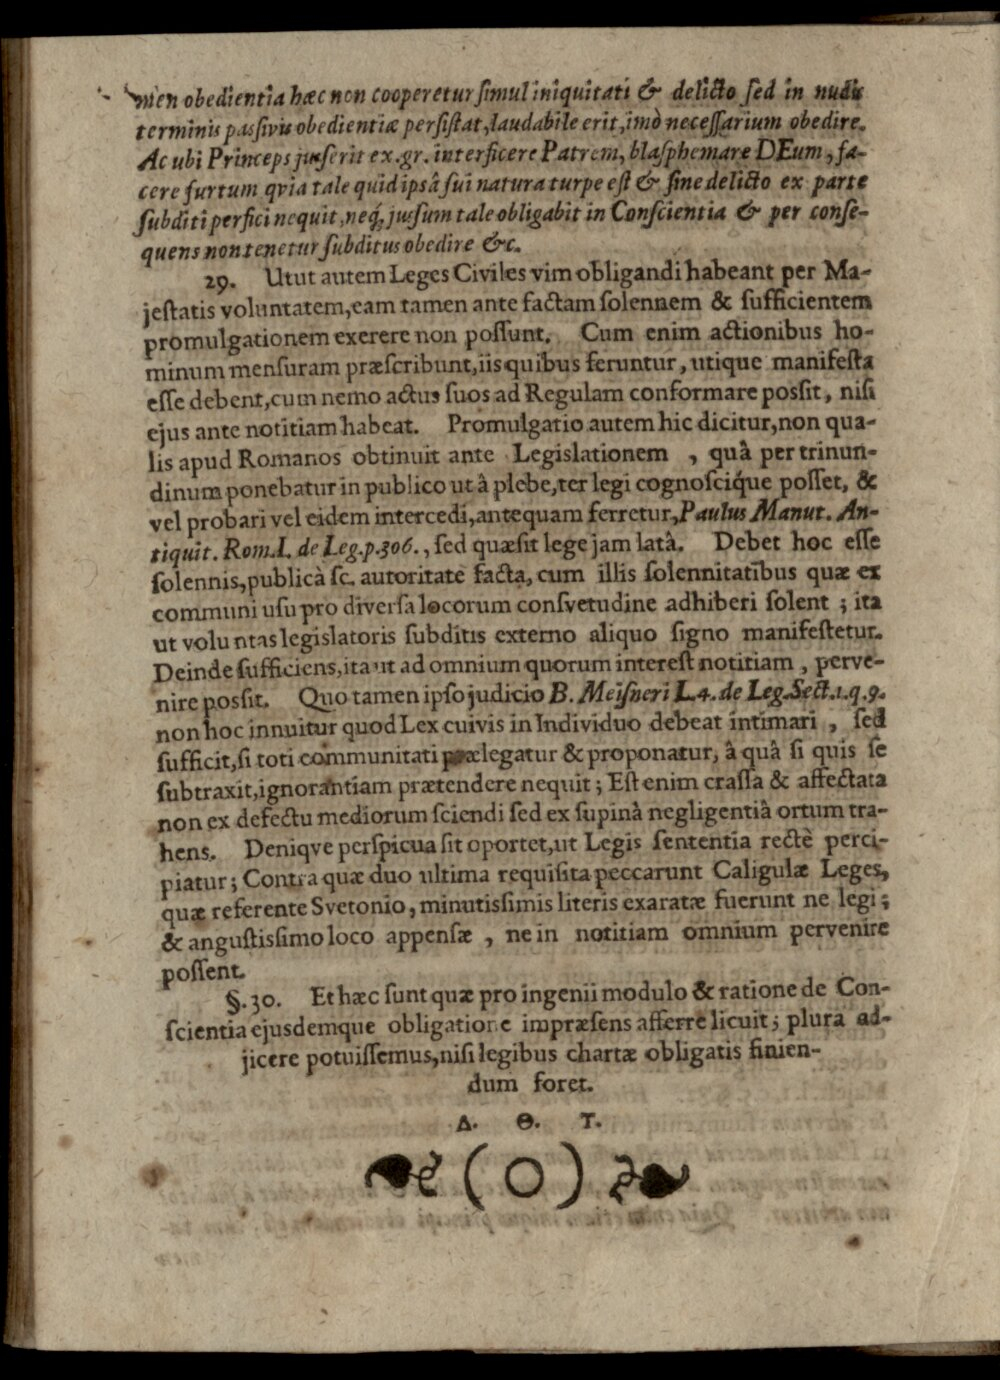 men obedientia hæc non cooperetur simul iniquitati & delicto sed in nudis
terminis passivis obedientiæ persistat, laudabile erit, imò necessarium obedire.
Ac ubi Princeps jusserit ex. gr. interficere Patrem, blasphemare DEum, fa-
cere furtum qvia tale quid ipsâ sui natura turpe est & sine delicto ex parte
subditi perfici nequit, neq; jussum tale obligabit in Conscientia & per conse-
quens non tenetur subditus obedire &c.
29. Utut autem Leges Civiles vim obligandi habeant per Ma-
jestatis voluntatem, eam tamen ante factam solennem & sufficientem
promulgationem exerere non possunt. Cum enim actionibus ho-
minum mensuram præscribunt, iis quibus feruntur, utique manifesta
esse debent, cum nemo actus suos ad Regulam conformare possit, nisi
ejus ante notitiam habeat. Promulgatio autem hic dicitur, non qua-
lis apud Romanos obtinuit ante Legislationem, quâ per trinun-
dinum ponebatur in publico ut â plebe, ter legi cognosciq́ue posset, &
vel probari vel eidem intercedi, antequam ferretur, Paulus Manut. An-
tiquit. Rom. l. de Leg. p. 306., sed quæ sit lege jam latâ. Debet hoc esse
solennis, publicâ sc. autoritate facta, cum illis solennitatibus quæ ex
communi usu pro diversa locorum consvetudine adhiberi solent; ita
ut voluntas legislatoris subditis externo aliquo signo manifestetur.
Deinde sufficiens, ita ut ad omnium quorum interest notitiam, perve-
nire possit. Quo tamen ipso judicio B. Meisneri L. 4. de Leg. Sect. 1. q. 9.
non hoc innuitur quod Lex cuivis in Individuo debeat intimari, sed
sufficit, si toti communitati prælegatur & proponatur, â quâ si quis se
subtraxit, ignorantiam prætendere nequit; Est enim crassa & affectata
non ex defectu mediorum sciendi sed ex supinâ negligentiâ ortum tra-
hens. Deniqve perspicua sit oportet, ut Legis sententia rectè perci-
piatur; Contra quæ duo ultima requisita peccarunt Caligulæ Leges,
quæ referente Svetonio, minutissimis literis exaratæ fuerunt ne legi;
& angustissimo loco appensæ, ne in notitiam omnium pervenire
possent.
§. 30. Et hæc sunt quæ pro ingenii modulo & ratione de Con-
scientia ejusdemque obligatione impræsens afferre licuit; plura ad-
jicere potuissemus, nisi legibus chartæ obligatis finien-
dum foret.
Δ. Θ. Τ.